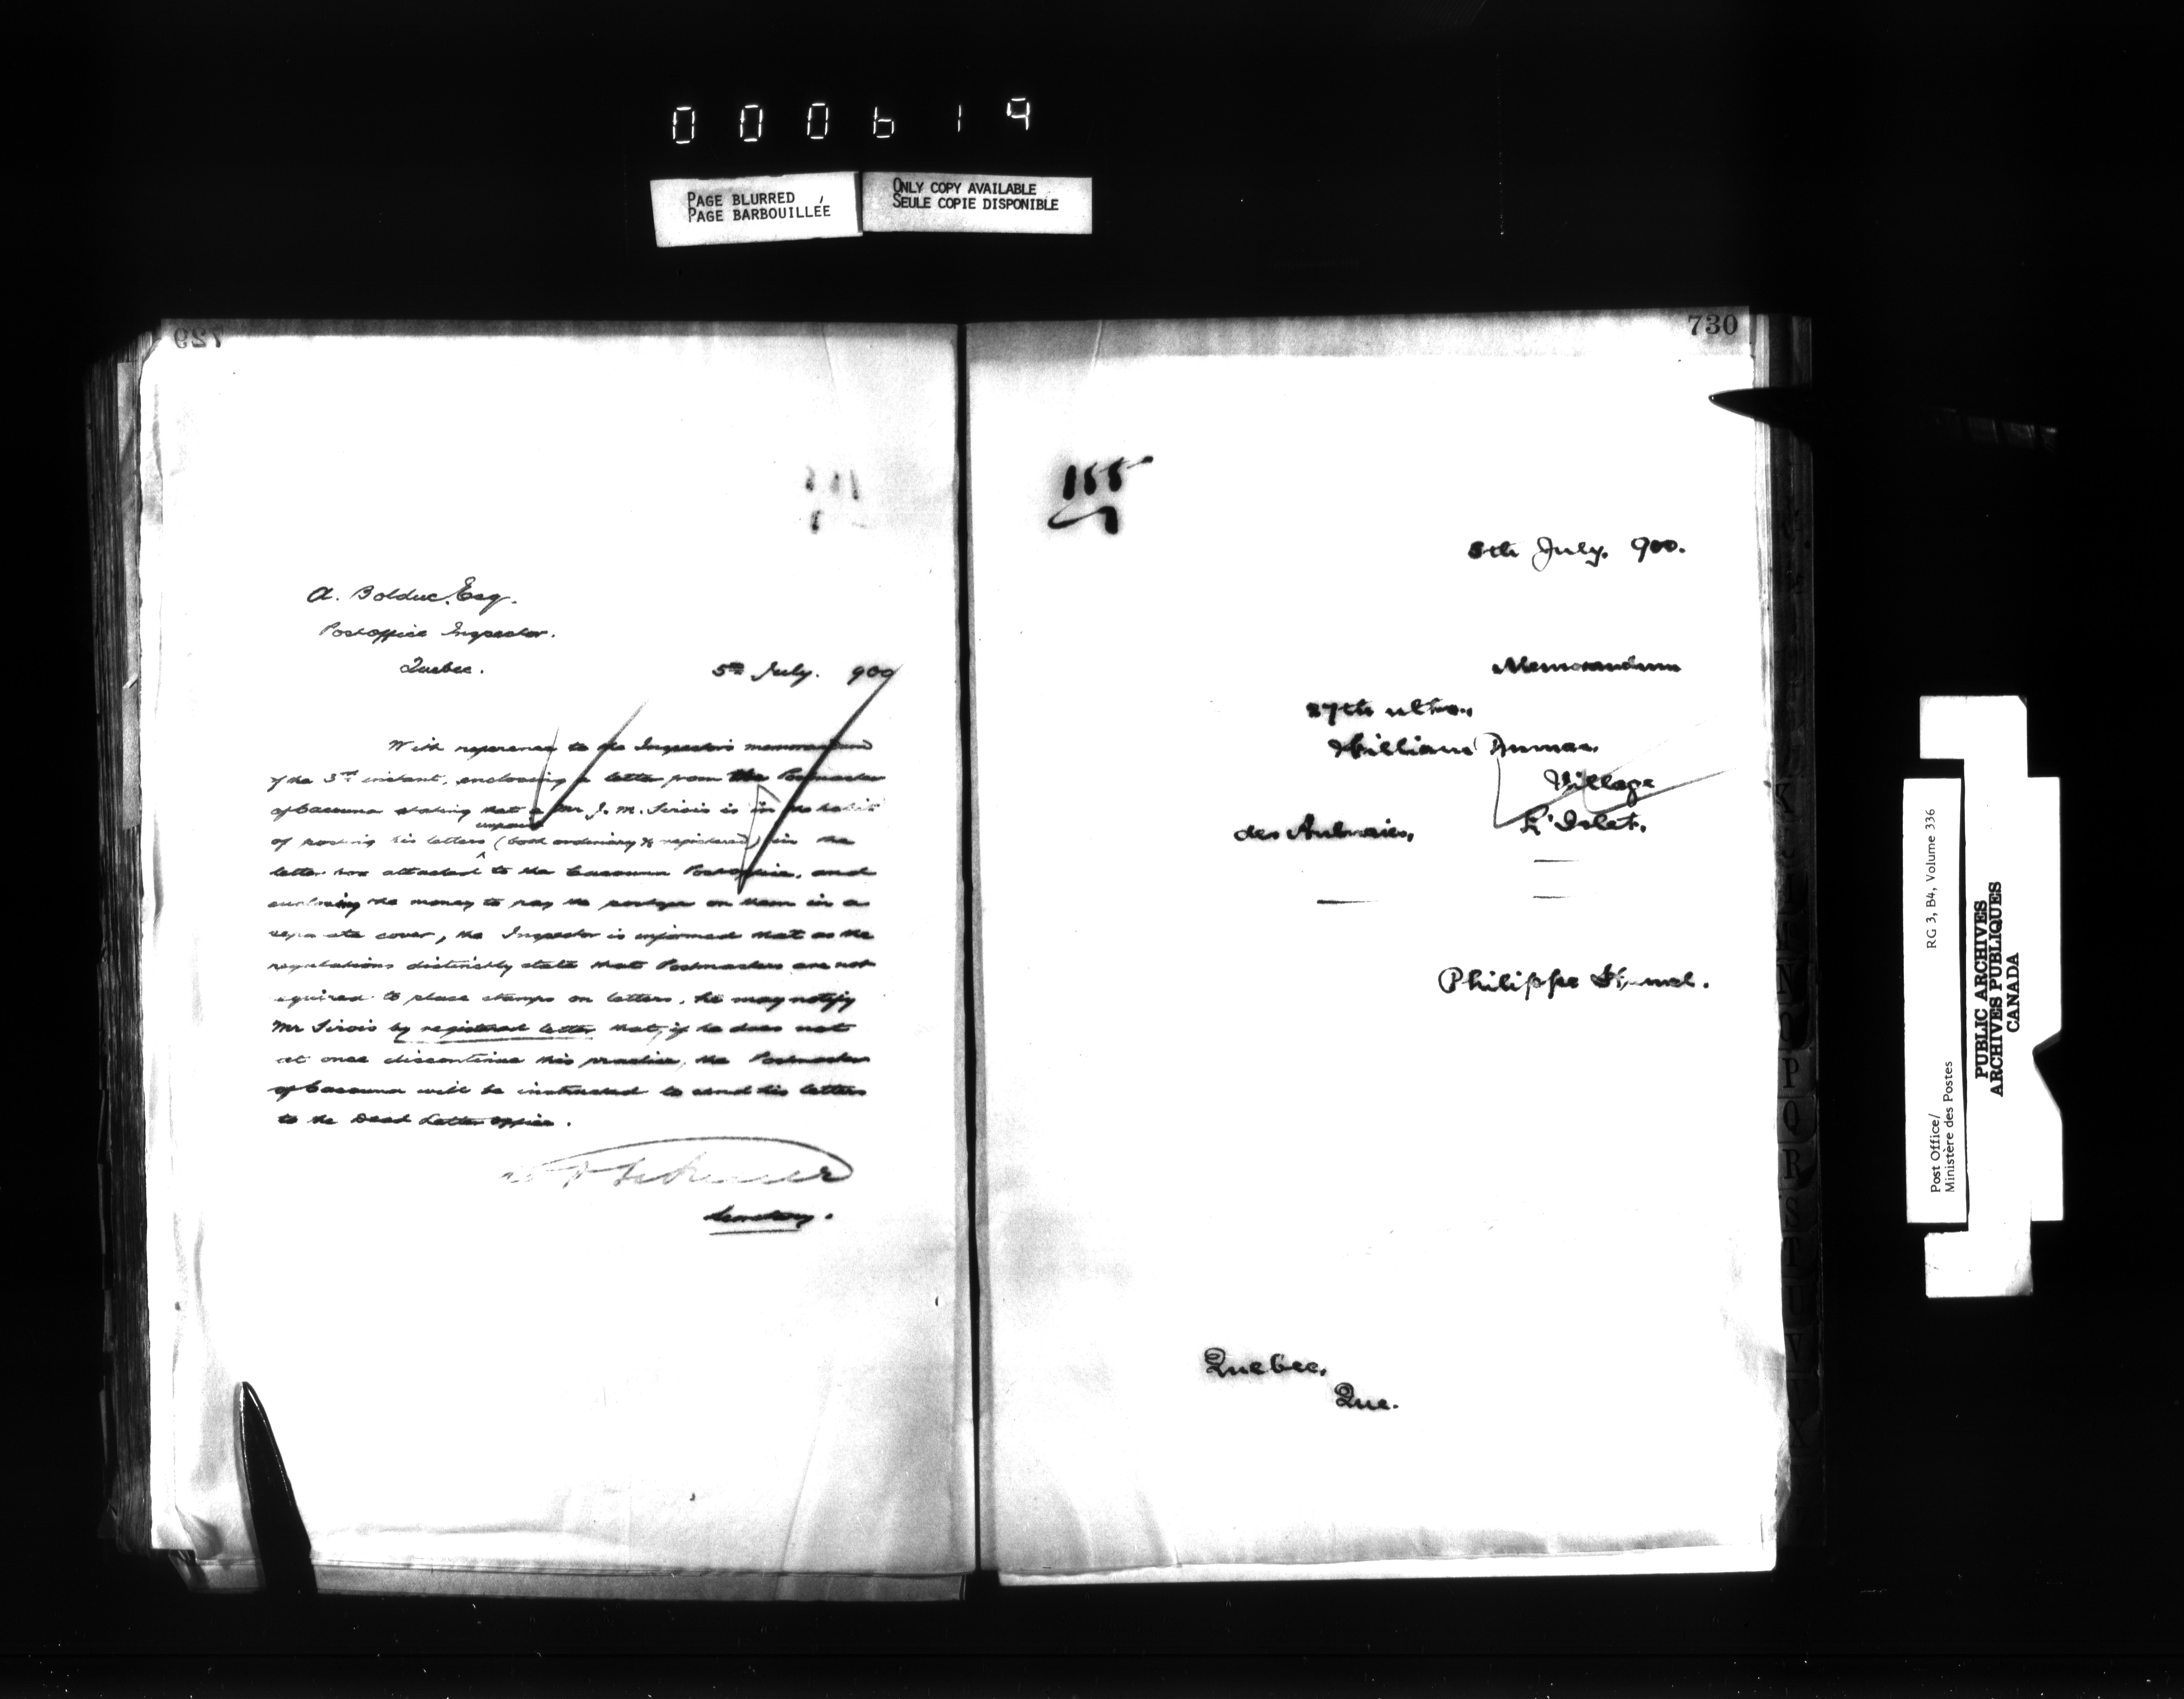 000619
PAGE BLURRED
PAGE BARBOUILLÉE
ONLY COPY AVAILABLE
SEULE COPIE DISPONIBLE
729
A. Bolduc, Esq.
Postoffice Inspector.
Quebec.
5th July. 900
With reference to the Inspector's memorandum
of the 3rd instant, enclosing a letter from the Postmaster
of Cacouna stating that a Mr J. M. Sirois is in the habit
of posting his letters (both ordinary & registered) unpaid in the
letter box attached to the Cacouna Postoffice, and
enclosing the money to pay the postage on them in a
separate cover, the Inspector is informed that as the
regulations distinctly state that Postmasters are not
required to place stamps on letters, he may notify
Mr Sirois by registered letter that, if he does not
at once discontinue this practice, the Postmaster
of Cacouna will be instructed to send his letters
to the Dead Letter Office.
Secretary.
730
5th July. 900.
Memorandum
27th ulto.,
William
Village
des Aulnaies,
L'Islet.
Philippe
Quebec,
Que.
RG 3, B4, Volume 336
Post Office/
Ministère des Postes
PUBLIC ARCHIVES
ARCHIVES PUBLIQUES
CANADA
K
N
O
P
Q
R
S
T
U
V